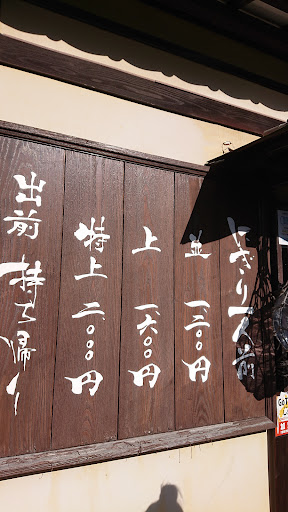 にぎり一人前
並 一、二〇〇円
上 一、六〇〇円
特上 二、〇〇〇円
出前 持ち帰り
Go To